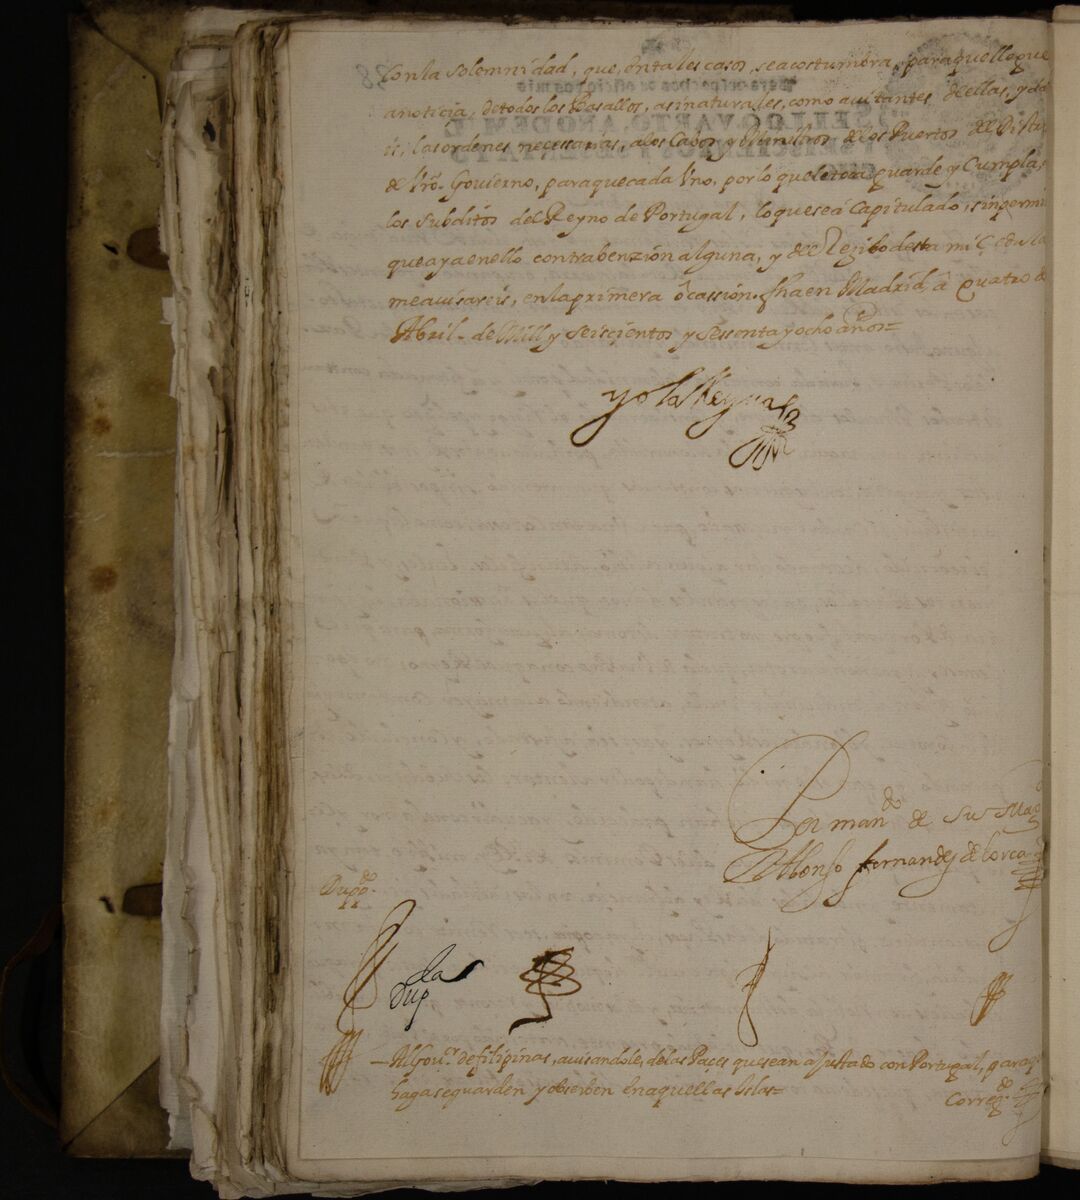 Con la Solemnidad, que, en tales casos, se acostumbra, para que llegue
a noticia, de todos los Basallos, asi naturales, como avitantes de ellas, y da
is, las ordenes necesarias, a los Cabos y Ministros de los Puertos del Distri
de Vro. Govierno, para que cada Vno, por lo que le toca guarde y Cumpla,
los Subditos del Reyno de Portugal, lo que se á Capitulado, sin permi
que aya en ello contrabenzion alguna, y del Reziuo desta mi Cedula
me auisareis, en la primera ocassion. fha en Madrid, â quatro de
Abril. de Mill y Seiscientos y Sessenta y ocho años=
yo la Reyna
Por mando. de Su Magd
Alonso fernandez de Lorca
Duppdo.
Dupda
— Al Gour. de filipinas, auisandole, de las Paçes que se an ajustado con Portugal, para q
haga se guarden y obserben en aquellas Islas=
Corregdo.